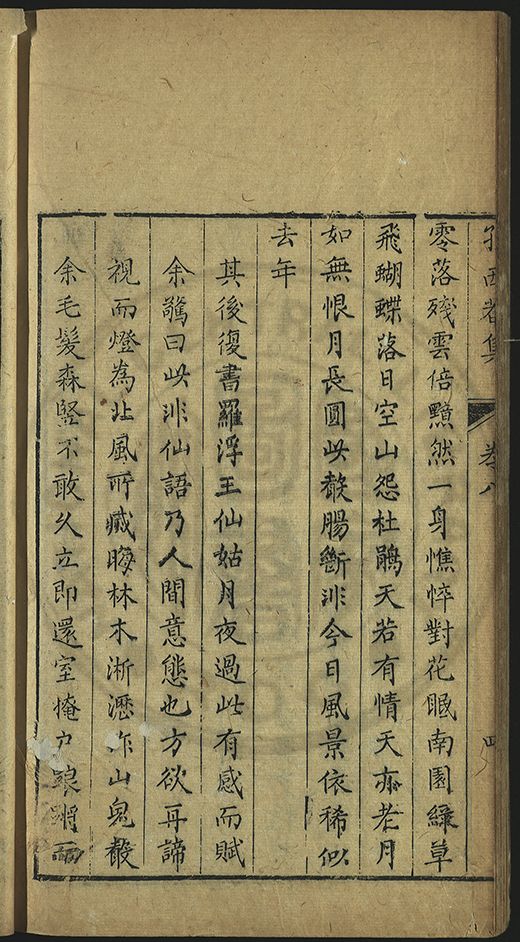 西菴集 卷八 四
零落殘雲倍黯然一身憔悴對花眠南園綠草
飛蝴蝶落日空山怨杜鵑天若有情天亦老月
如無恨月長圓此聲腸斷非今日風景依稀似
去年
其後復書羅浮王仙姑月夜過此有感而賦
余驚曰此非仙語乃人間意態也方欲再諦
視而燈為北風所晦林木淅瀝作山鬼聲
余毛髮森竪不敢久立即還室掩戶踉蹡而